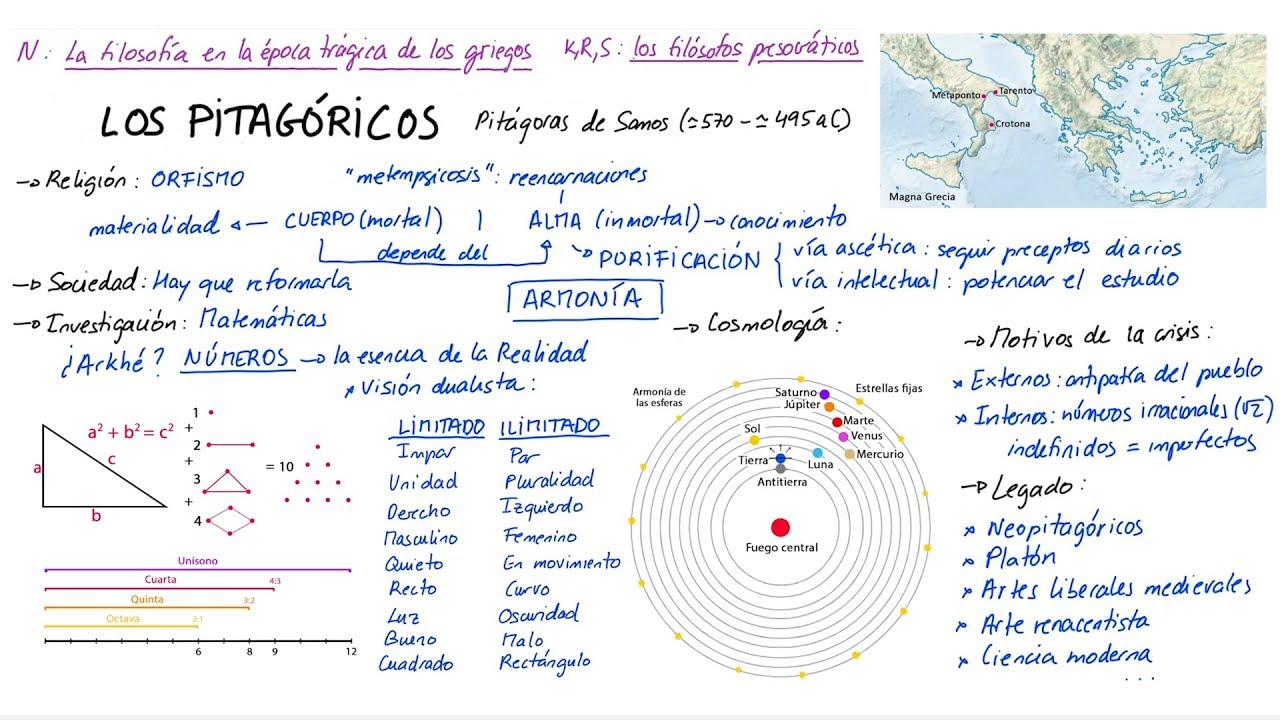 N: La filosofía en la época trágica de los griegos K,R,S: los filósofos presocráticos
LOS PITAGÓRICOS Pitágoras de Samos (≃570 - ≃495 a C)
Metaponto
Tarento
Crotona
Magna Grecia
→ Religión: ORFISMO "metempsicosis": reencarnaciones
materialidad ← CUERPO (mortal) | ALMA (inmortal) → conocimiento
depende del
PURIFICACIÓN { vía ascética: seguir preceptos diarios
vía intelectual: potenciar el estudio
→ Sociedad: Hay que reformarla
ARMONÍA
→ Investigación: Matemáticas
¿Arkhé? NÚMEROS → la esencia de la Realidad
* Visión dualista:
a² + b² = c²
a
b
c
1
+
2
+
3
+
4
= 10
Unísono
Cuarta 4:3
Quinta 3:2
Octava 2:1
6 8 9 12
LIMITADO ILIMITADO
Impar Par
Unidad Pluralidad
Derecho Izquierdo
Masculino Femenino
Quieto En movimiento
Recto Curvo
Luz Oscuridad
Bueno Malo
Cuadrado Rectángulo
→ Cosmología:
Armonía de
las esferas
Estrellas fijas
Saturno
Júpiter
Marte
Sol
Venus
Mercurio
Tierra
Luna
Antitierra
Fuego central
→ Motivos de la crisis:
* Externos: antipatía del pueblo
* Internos: números irracionales (√2)
indefinidos = imperfectos
→ Legado:
* Neopitagóricos
* Platón
* Artes liberales medievales
* Arte renacentista
* Ciencia moderna
...